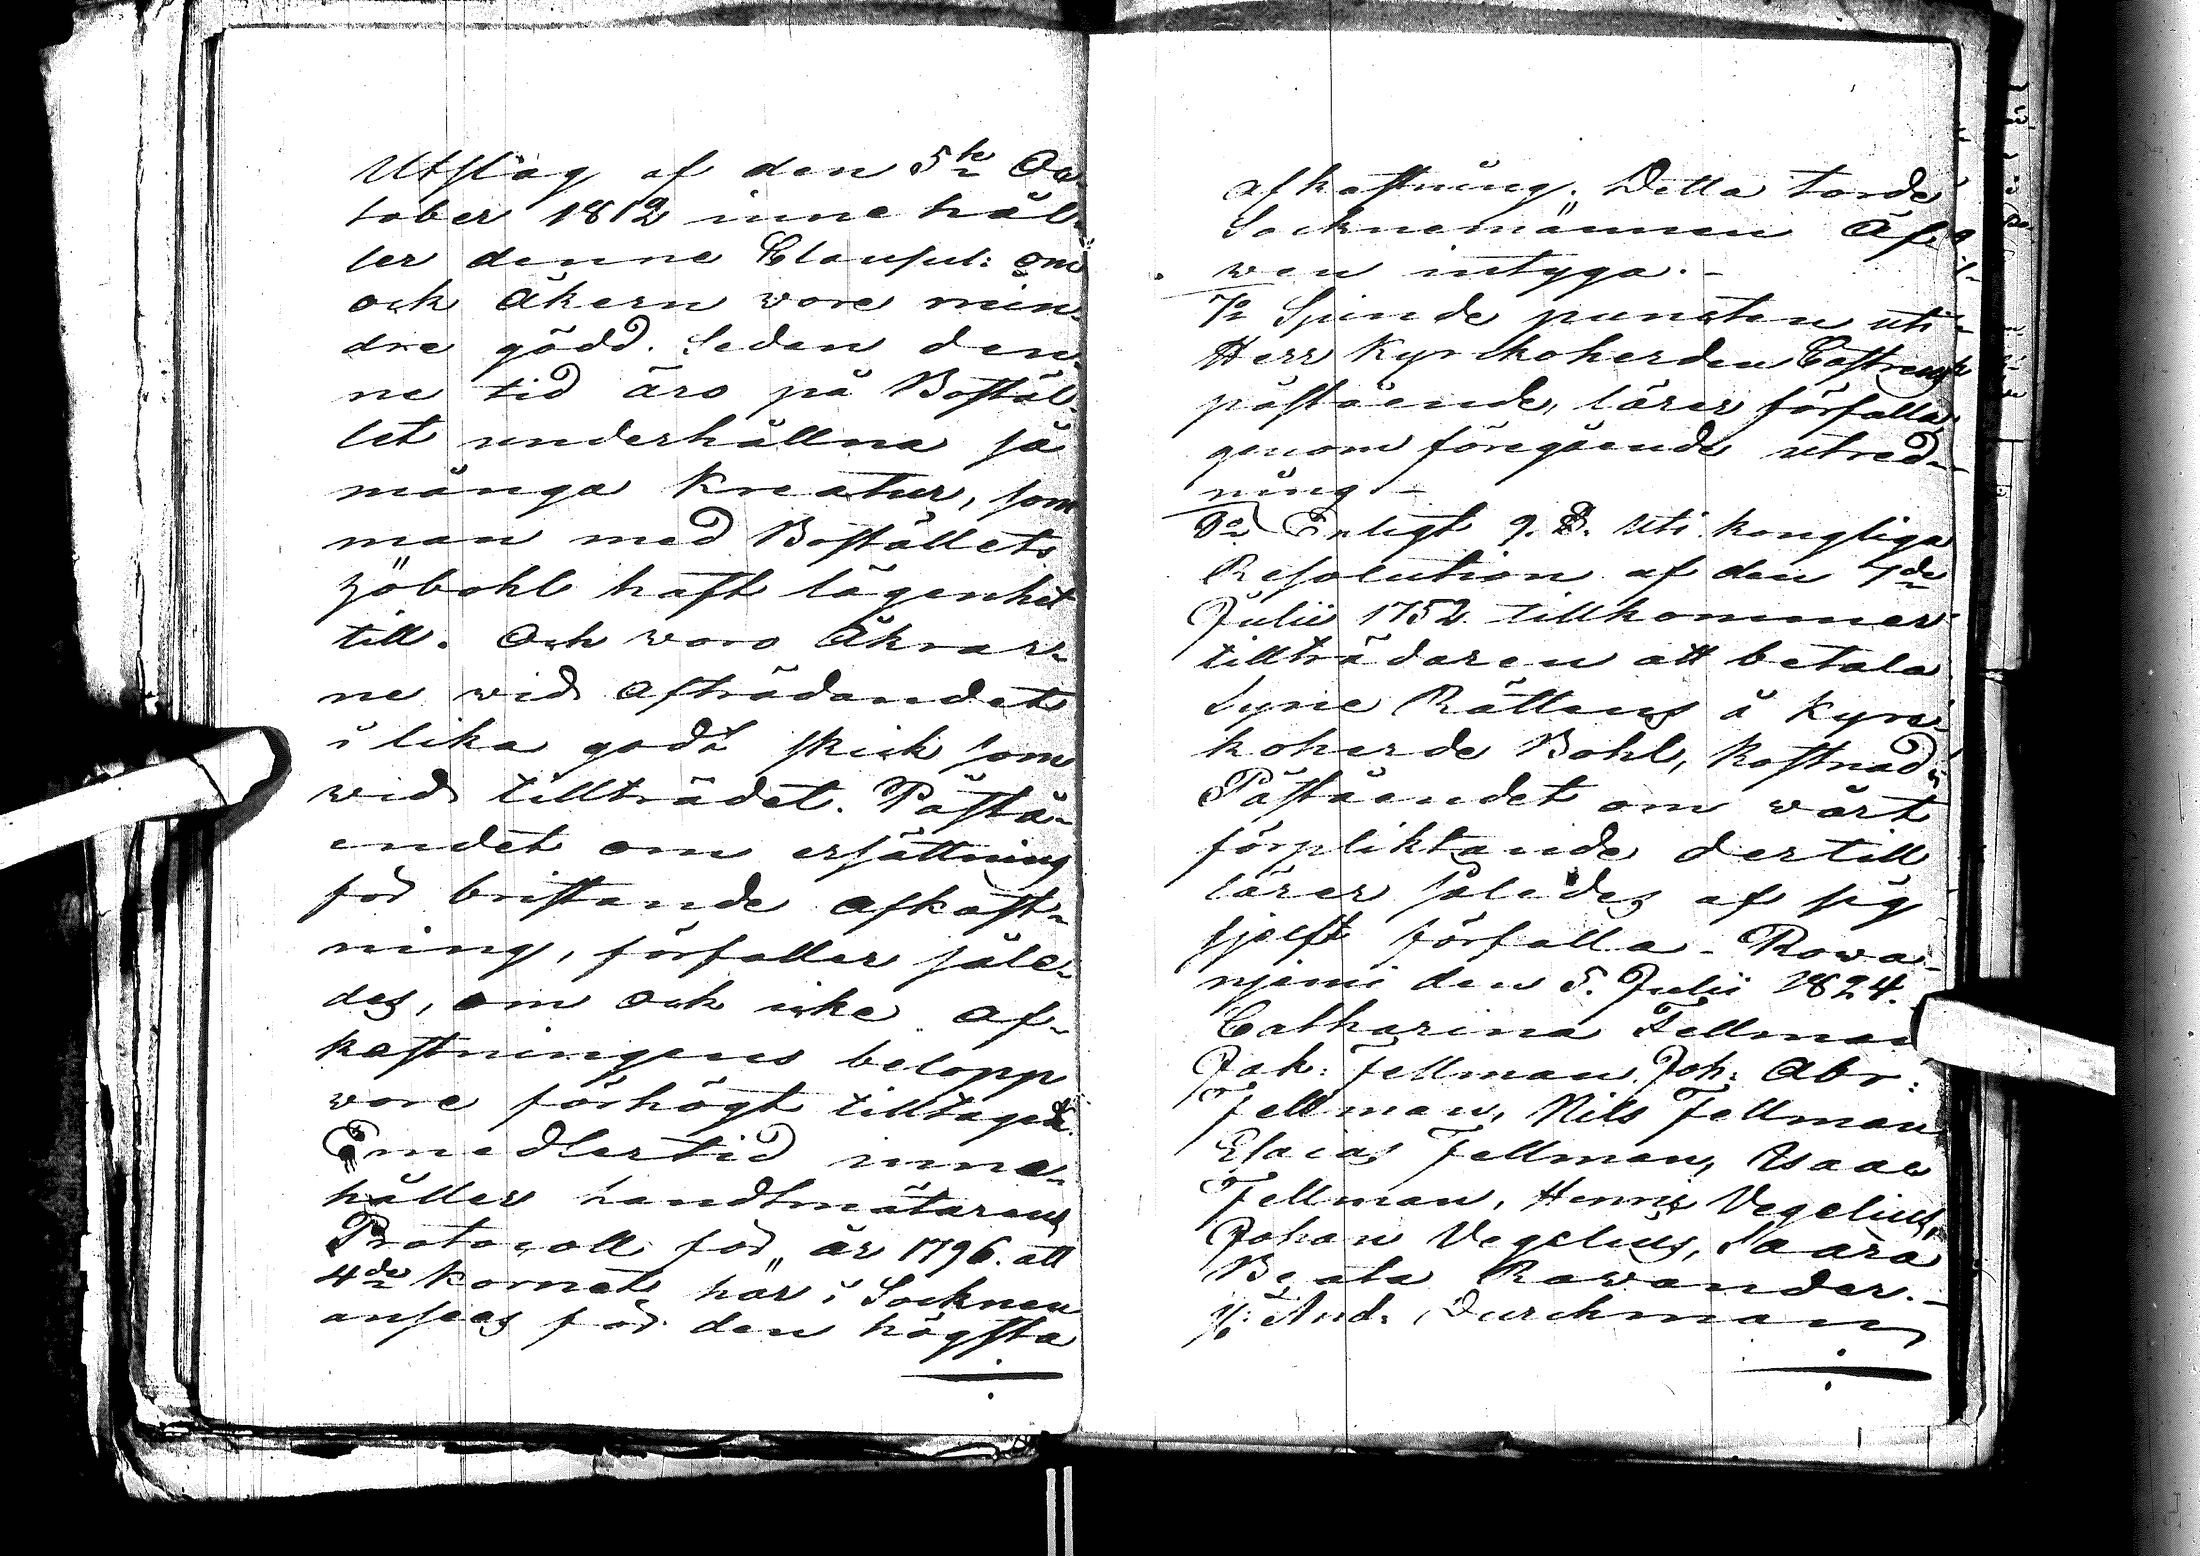 Utslag af den 5te Oc-
tober 1812 inne håll-
ler denne Clausul: om
ock Åkern wore min-
dre gödd. Sedan den-
ne tid äro på Boställ-
let underhållna så
många Kreatur, som
man med Boställets
höbohl haft lägenhet
till. Och woro Åkrar-
ne wid afträdandet
i lika godt skick som
wid tillträdet. Påstå-
endet om ersättning
för bristande afkast-
ning, förfaller såle-
des, om ock icke af-
kastningens belopp
wore förhögt tilltaget.
Emedlertid inne-
håller Landtmätarens
Protocoll för år 1796. att
4de Kornet här i Socknen
anses för den högsta
afkastning. Detta torde
Socknemännen Äf-
wen intyga. -
7o Sjunde puncten uti
Herr Kyrckoherden Castrens
påstående, lärer förfalla
genom föregående utred-
ning -
8o Enligt 9. §. uti Kongliga
Resolution af den 7de
Julii 1752 tillkommer
tillträdaren att betala
Syne Rättens å Kyrc-
koherde Bohl, Kostnad
Påståendet om wårt
förpliktande dertill
lärer således af sig
sjelft förfalla - Rowa-
njemi den 5. Julii 1824.
Catharina Fellman
Jak: Fellman. Joh: Abr:
Fellman, Nils Fellman
Esaias Fellman, Isaac
Fellman, Henric Vegelius,
Johan Vegelius, Saara
Beata Rawander. -
And. Durchman